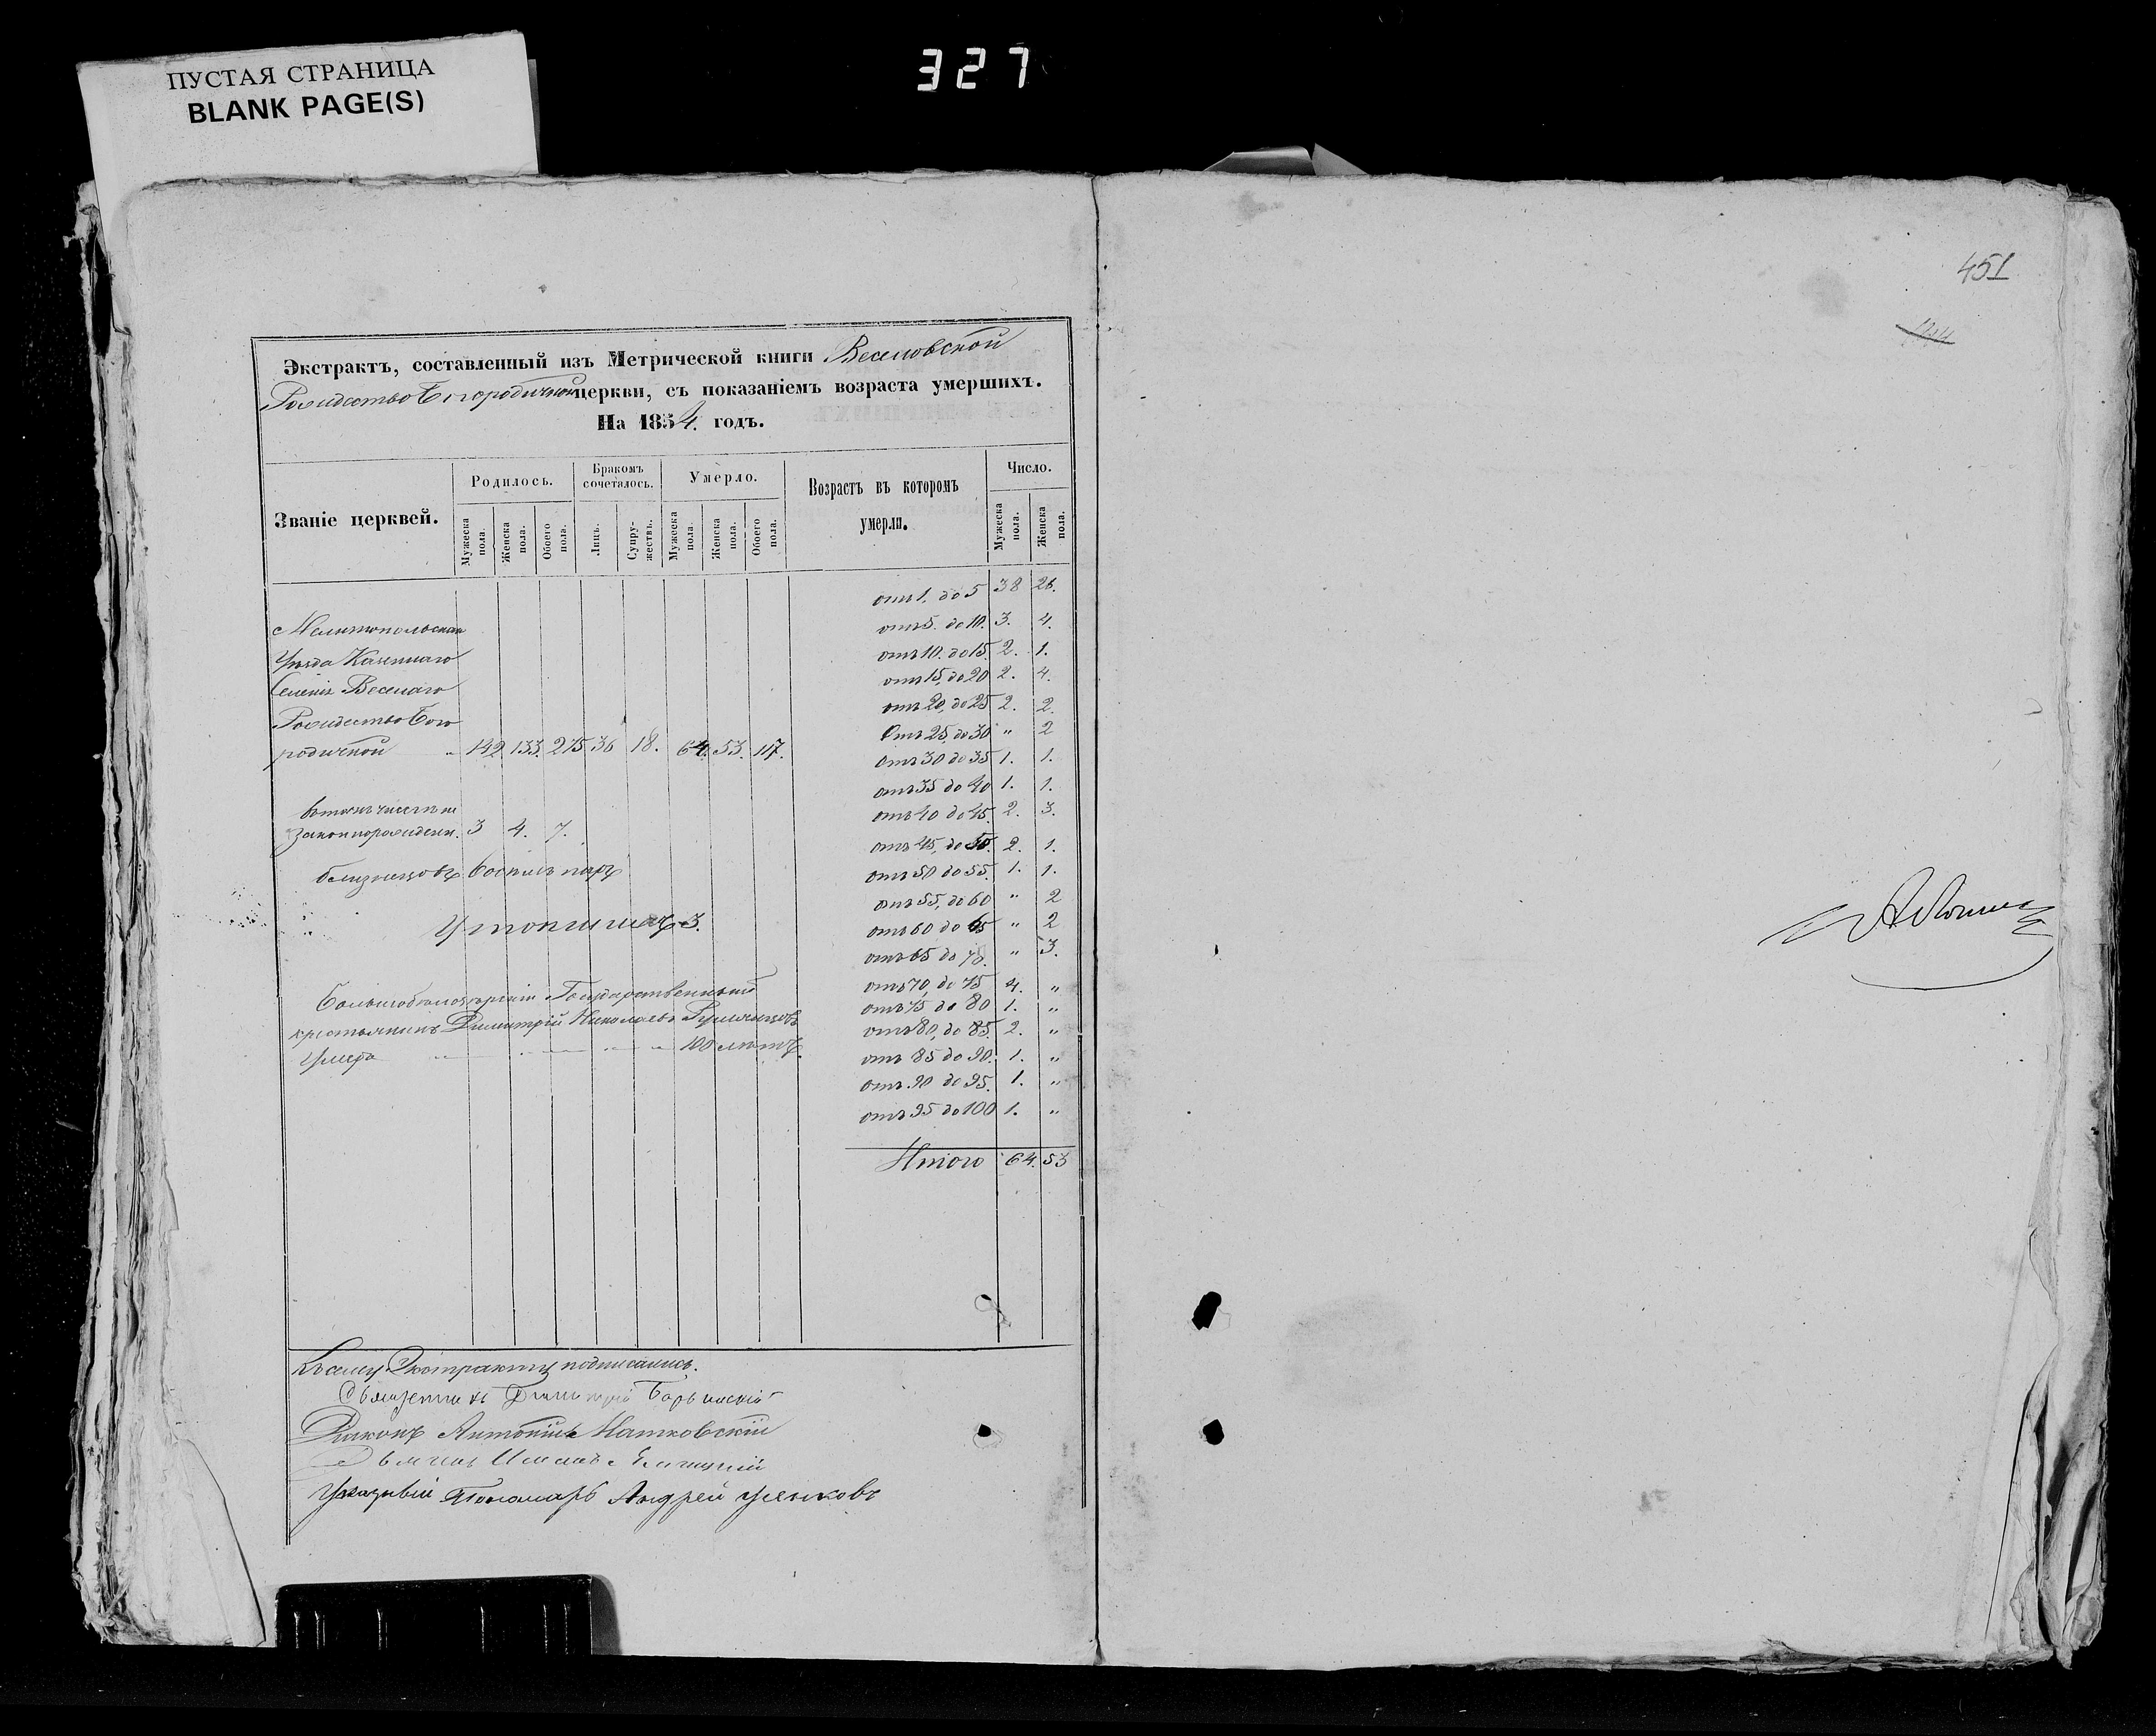 ПУСТАЯ СТРАНИЦА
BLANK PAGE(S)
327
451
Экстрактъ, составленный изъ Метрической книги Веселовской
Рождество Богородичной церкви, съ показаніемъ возраста умершихъ.
На 1854. годъ.
Званіе церквей.
Родилось.
Бракомъ сочеталось.
Умерло.
Возрастъ въ котором умерли.
Число.
Мужеска пола.
Женска пола.
Обоего пола.
Лицъ.
Супружествъ.
Мужеска пола.
Женска пола.
Обоего пола.
Мужеска пола.
Женска пола.
Мелитопольскаго
Уѣзда Казеннаго
Селенія Веселаго
Рождество Бого
родичной „ 142 133. 275 36 18. 64. 53. 117.
въ томъ числѣ не
законнорожденн. 3 4. 7.
близнецовъ восемь паръ
Утопшихъ 3.
Государственный
крестьянинъ Димитрій Николаевъ Румянцовъ
Умеръ 100 лѣтъ.
отъ 1. до 5 38 26.
отъ 5. до 10. 3. 4.
отъ 10. до 15. 2. 1.
отъ 15, до 20 2. 4.
отъ 20, до 25 2. 2.
Отъ 25, до 30 „ 2
отъ 30 до 35 1. 1.
отъ 35 до 40 1. 1.
отъ 40 до 45. 2. 3.
отъ 45, до 50. 2. 1.
отъ 50 до 55. 1. 1.
отъ 55, до 60 „ 2
отъ 60 до 65 „ 2
отъ 65 до 70. „ 3.
отъ 70, до 75 4. „
отъ 75 до 80 1. „
отъ 80, до 85. 2. „
отъ 85 до 90. 1. „
отъ 90 до 95. 1. „
отъ 95 до 100 1. „
Итого 64. 53
Къ сему Экстракту подписались.
Священникъ Димитрій
Діаконъ Антоній Натковскій
Дьячекъ
Указный Пономарь Андрей Усенковъ